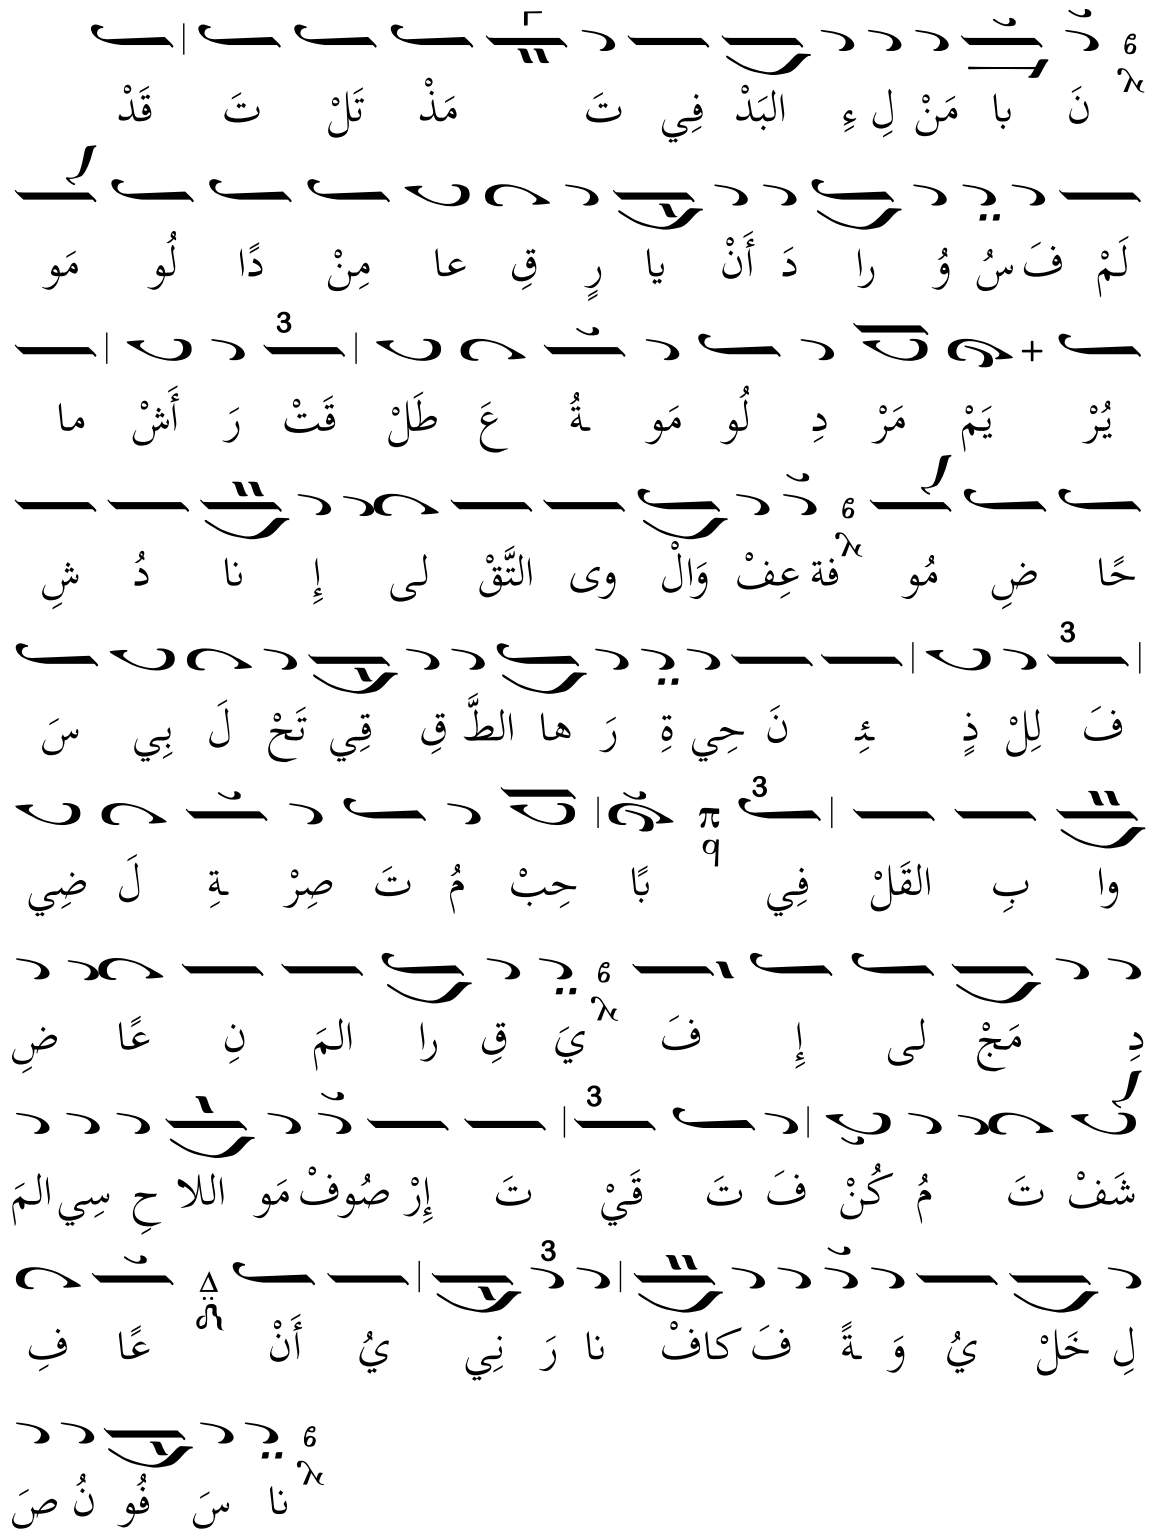 قَدْ تَ تَلْ مَذْ تَ فِي البَدْ ءِ لِ مَنْ با نَ
مَو لُو دًا مِنْ عا قِ رٍ يا أَنْ دَ را وُ سُ فَ لَمْ
ما أَشْ رَ قَتْ طَلْ عَ ـةُ مَو لُو دِ مَرْ يَمْ يُرْ
شِ دُ نا إِ لى التَّقْ وى وَالْ عِفْ فة مُو ضِ حًا
سَ بِي لَ تَحْ قِي قِ الطَّ ها رَ ةِ حِي نَ ئِ ذٍ لِلْ فَ
ضِي لَ ـةِ صِرْ تَ مُ حِبْ بًا فِي القَلْ بِ وا
ضِ عًا نِ المَ را قِ يَ فَ إِ لى مَجْ دِ
المَ سِي حِ اللا مَو صُوفْ إِرْ تَ قَيْ تَ فَ كُنْ مُ تَ شَفْ
فِ عًا أَنْ يُ نِي رَ نا كافْ فَ ـةً وَ يُ خَلْ لِ
صَ نُ فُو سَ نا